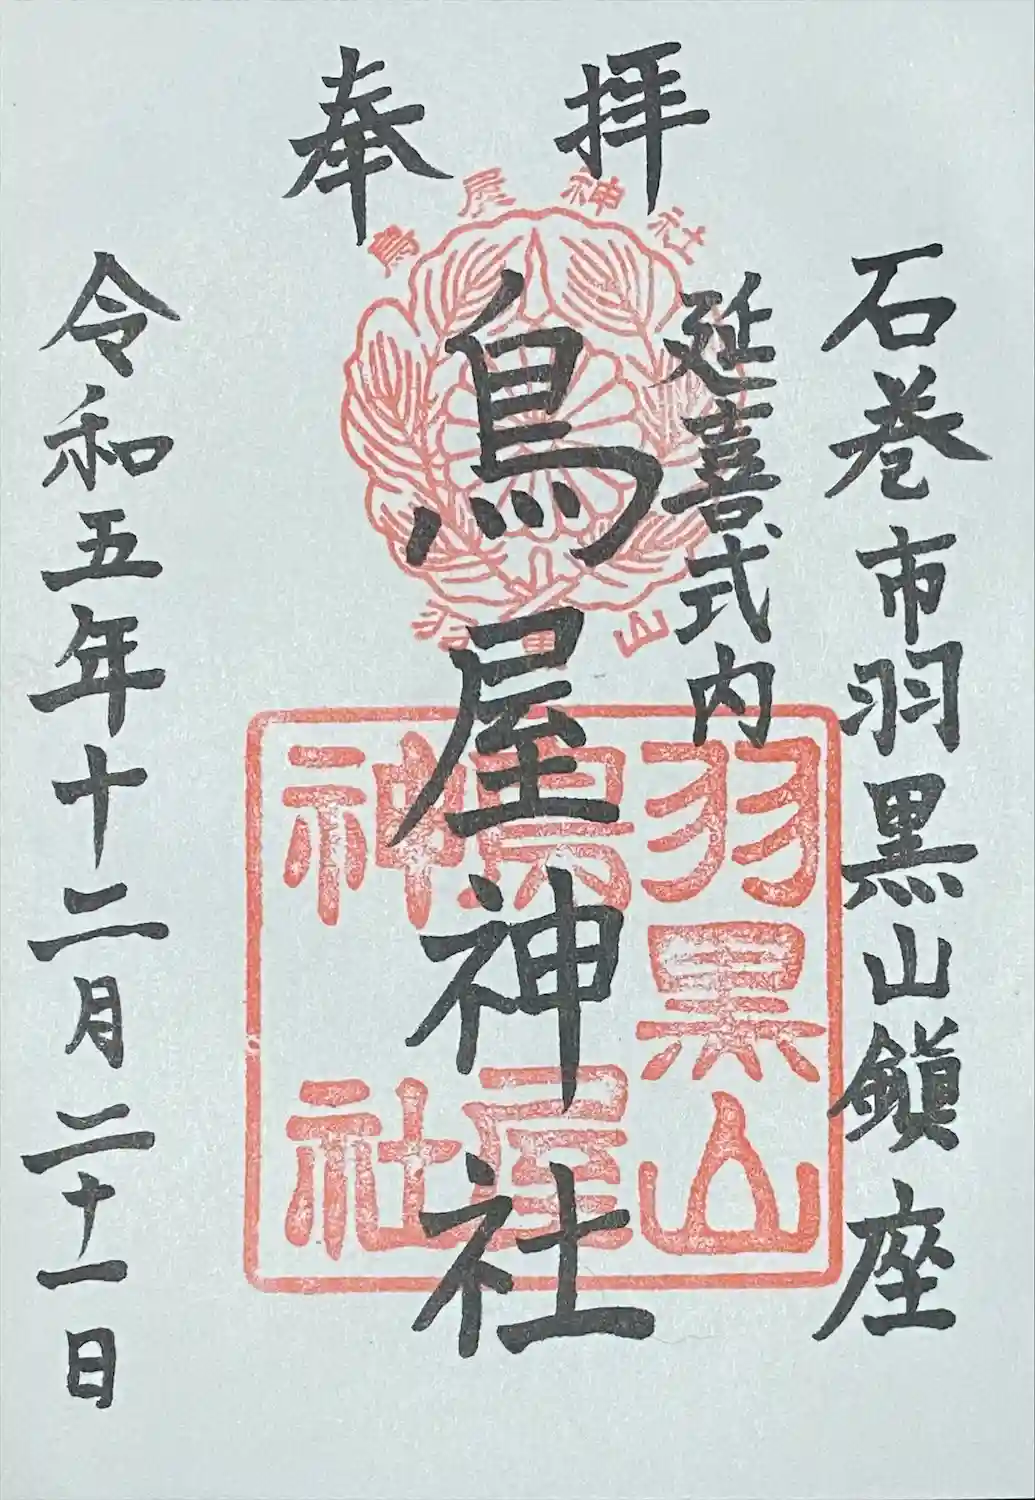 奉拝
石巻市羽黒山鎮座
延喜式内
鳥屋神社
令和五年十二月二十一日
鳥屋神社
羽黒山
羽黒山
鳥屋
神社